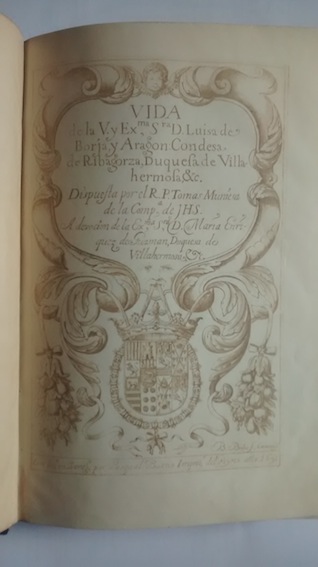 VIDA
de la V. y Ex.ma S.ra D. Luisa de
Borja, y Aragon Condesa
de Ribagorza, Duquesa de Villa
hermosa, &c.
Dispuesta por el R. P. Tomas Muniesa
de la Comp.a de JHS.
A devocion de la Ex.ma S.ra D. Maria Enri
quez de Guzman, Duquesa de
Villahermosa, &c.